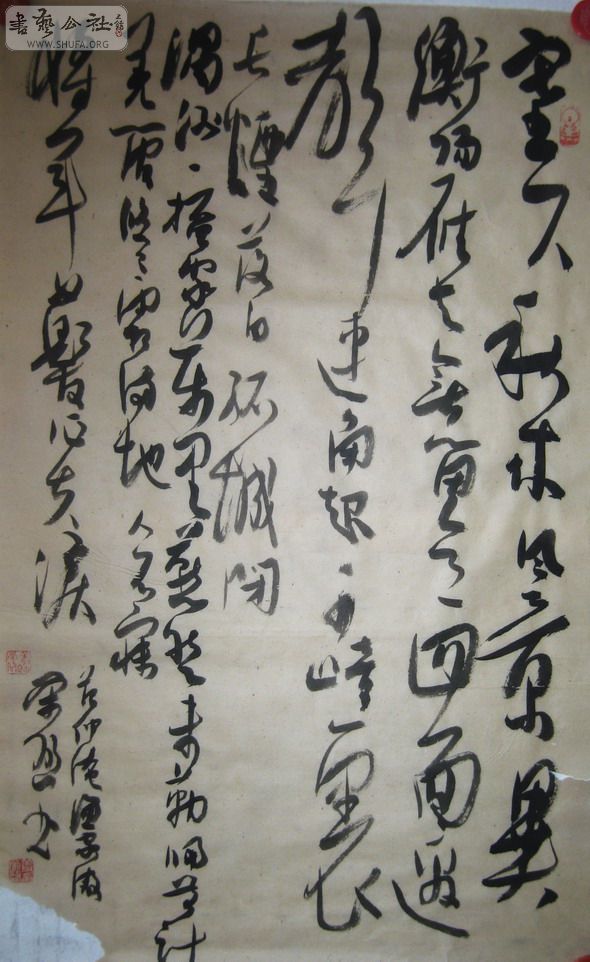 書藝公社
WWW.SHUFA.ORG
塞下秋來風景異
衡陽雁去無留意四面邊
聲連角起千嶂裏
長煙落日孤城閉
濁酒一杯家萬里燕然未勒歸無計
羌管悠悠霜滿地人不寐
將軍白髮征夫淚
范仲淹漁家傲
書